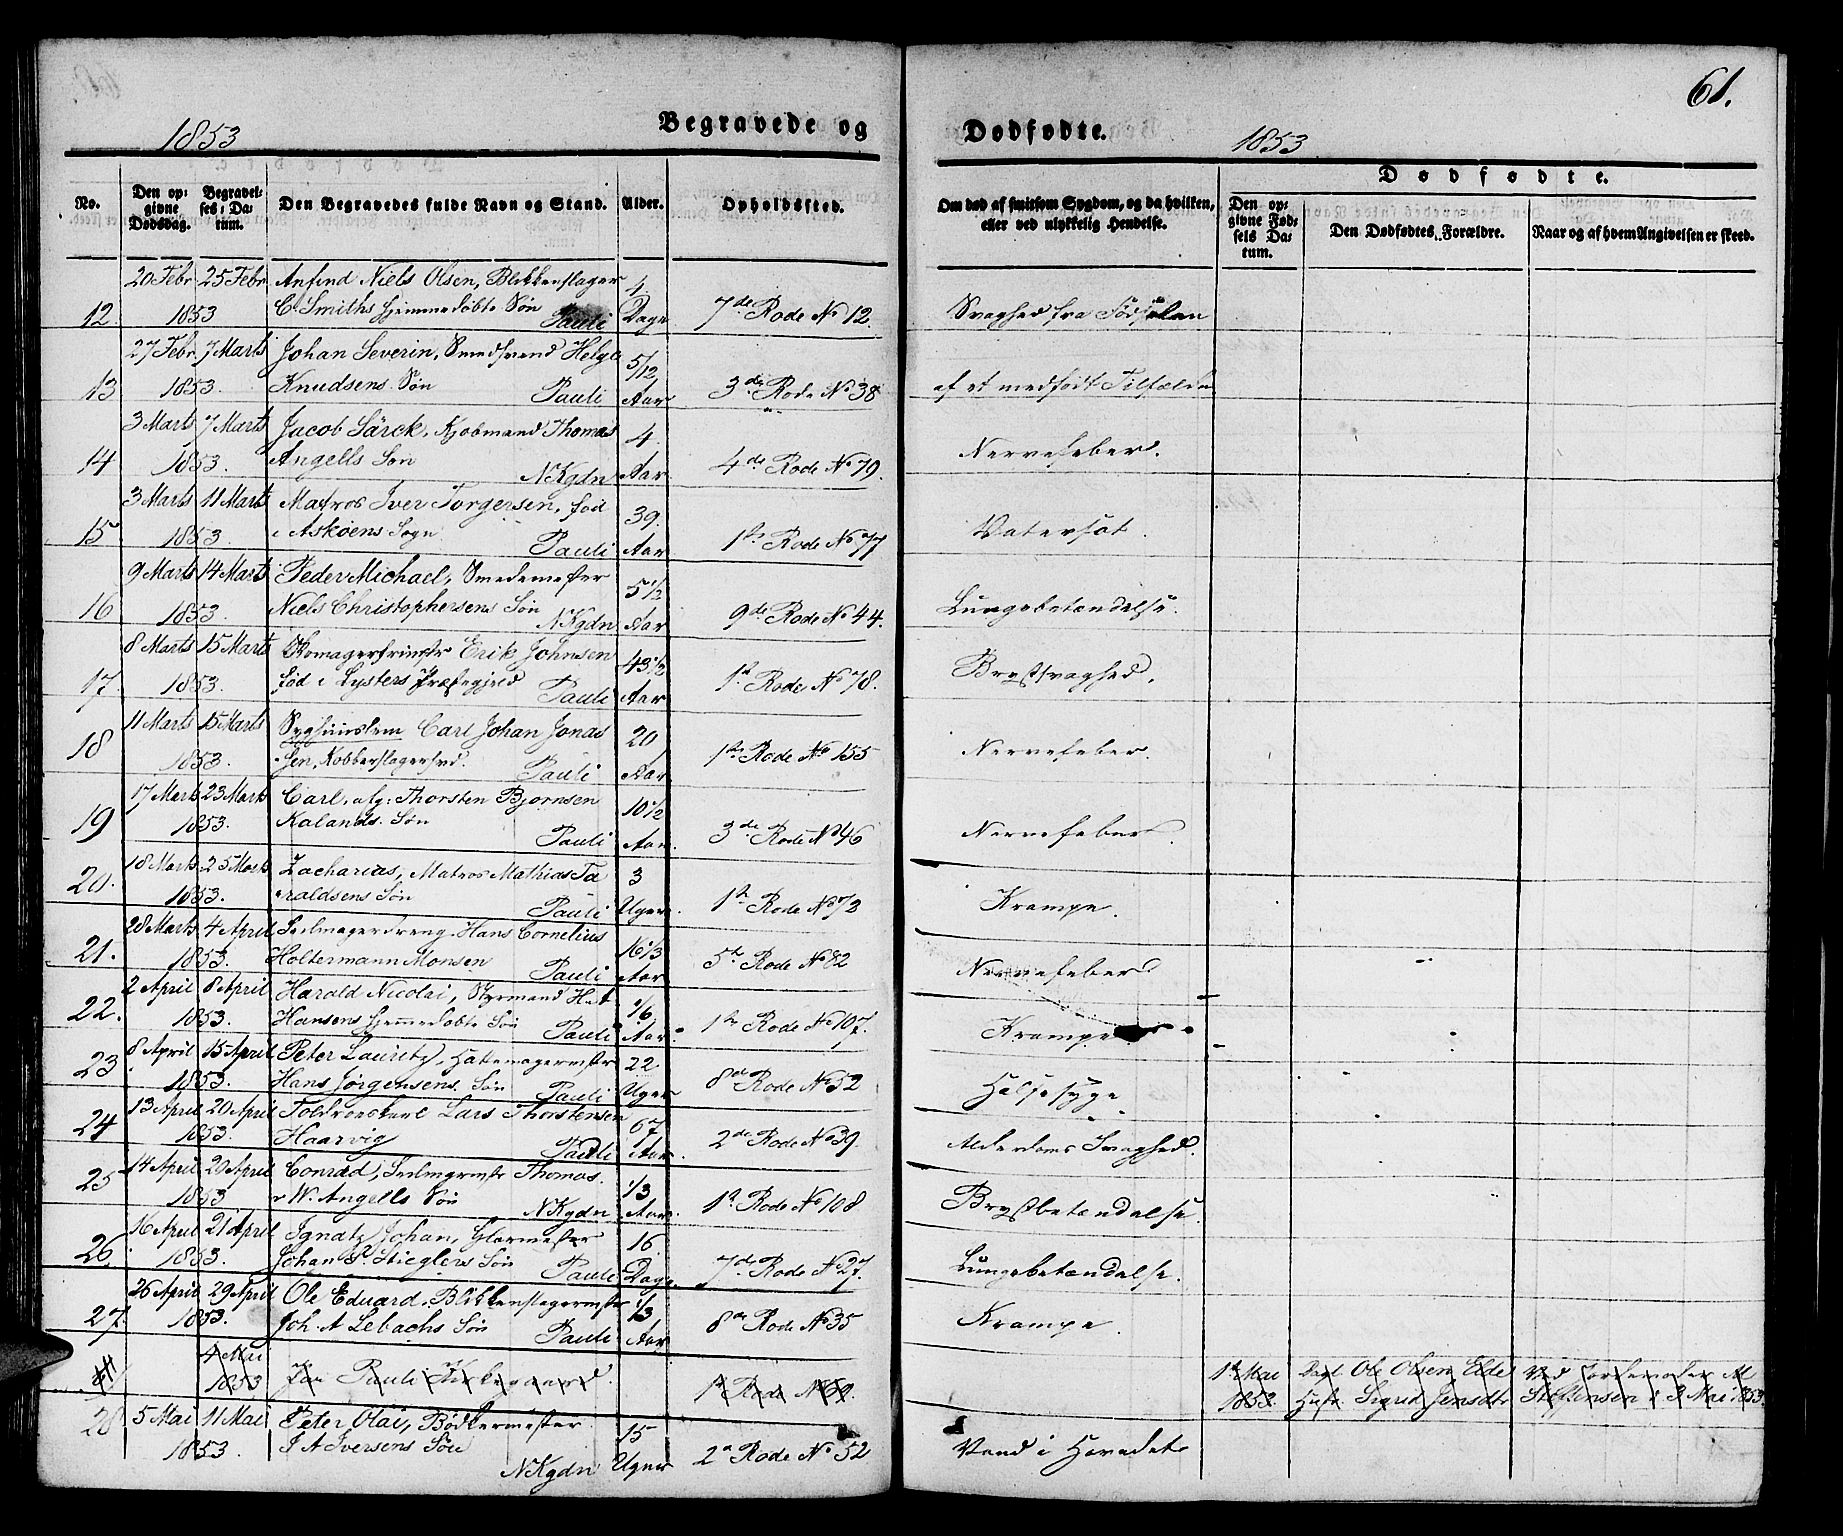 61.
1853 Begravede og Dødfødte. 1853
No. Den opgivne Dødsdag. Begravelses-Datum. Den Begravedes fulde Navn og Stand. Alder. Opholdssted.
Om død af smitsom Sygdom, og da hvilken, eller ved ulykkelig Hendelse.
Dødfødte.
Den opgivne Fødsels Datum. Den Dødfødtes Forældre. Naar og af hvem Angivelsen er skeed.
20 Febr 25 Febr Anfind Niels Olsen, Blikkenslager 4
12. 1853 C. Smiths hjemmedøbte Søn Pauli Dage 7de Rode No 12. Svaghed fra Fødselen
27 Febr 7 Marts Johan Severin, Smedsvend Helge 5/12
13 1853. Knudsens Søn Pauli Aar 3de Rode No 38 af et medfødt Tilfælde
3 Marts 7 Marts Jacob Särck, Kjøbmand Thomas 4
14 1853. Angells Søn NKgdn Aar 4de Rode No 79. Nervefeber.
3 Marts 11 Marts Matros Iver Torgersen, fød 39.
15 1853. i Askøens Sogn Pauli Aar 1ste Rode No 77 Vatersot.
9 Marts 14 Marts Peder Michael, Smedemester 5 1/2
16 1853. Niels Christophersens Søn NKgdn Aar 9de Rode No 44. Lungebetændelse.
8 Marts 15 Marts Skomagersvend Erik Johnsen 43 1/2
17. 1853. fød i Lysters Præstegjeld Pauli Aar 1st Rode No 78. Brystsvaghed.
11 Marts 15 Marts Carl Johan Jonas 20
18 1853. sen, Kobberslagersvd. Pauli Aar 1ste Rode No 155 Nervefeber.
17 Marts 23 Marts Carl, afg: Thorsten Bjørnsen 10 1/2
19 1853. Kalands Søn Pauli Aar. 3de Rode No 46 Nervefeber.
18 Marts 25 Marts Zacharias, Matros Mathias Ta 3
20. 1853. raldsens Søn Pauli Uger. 1st Rode No 72 Krampe.
28 Marts 4 April Seilmagerdreng Hans Cornelius 16 1/3
21. 1853. Holtermann Monsen Pauli Aar 5te Rode No 82 Nervefeber
2 April 8 April Harald Nicolai, Styrmand 1/6
22. 1853. Hansens hjemmedøbte Søn Pauli Aar. 1ste Rode No 107. Krampe
8 April 15 April Peter Lauritz, Hattemagermstr 22
23 1853. Hans Jørgensens Søn Pauli Uger 8de Rode No 52 Halssyge
13 April 20 April Toldroerskarl Lars Thorstensen 67
24 1853. Haarvig Pauli Aar. 2de Rode No 39. Alderdoms Svaghed.
14 April 20 April Conrad, Seilmgrmstr Thomas 1/3
25 1853 W. Angells Søn NKgdn Aar. 1st Rode No 108 Brystbetændelse.
16 April 21 April Ignatz Johan, Glarmester 16
26. 1853. Johan Stieglers Søn Pauli Dage. 7de Rode No 27. Lungebetændelse.
26 April 29 April Ole Eduard, Blikkenslagermstr 1/3
27. 1853. Joh. A Lebachs Søn Pauli Aar 8de Rode No 35 Krampe.
4 Mai 1st Mai Ole Olsen Elde Ved
1853 Paa Pauli Kirkegaard. 1st Rode No 1853. Hustr. Sigrid Jensdtr Steffensen 3 Mai 1853.
28. 5 Mai 11 Mai Peter Olai, Bødkermester 15
1853. I A Iversens Søn NKgdn Uger 2de Rode No 52 Vand i Hovedet